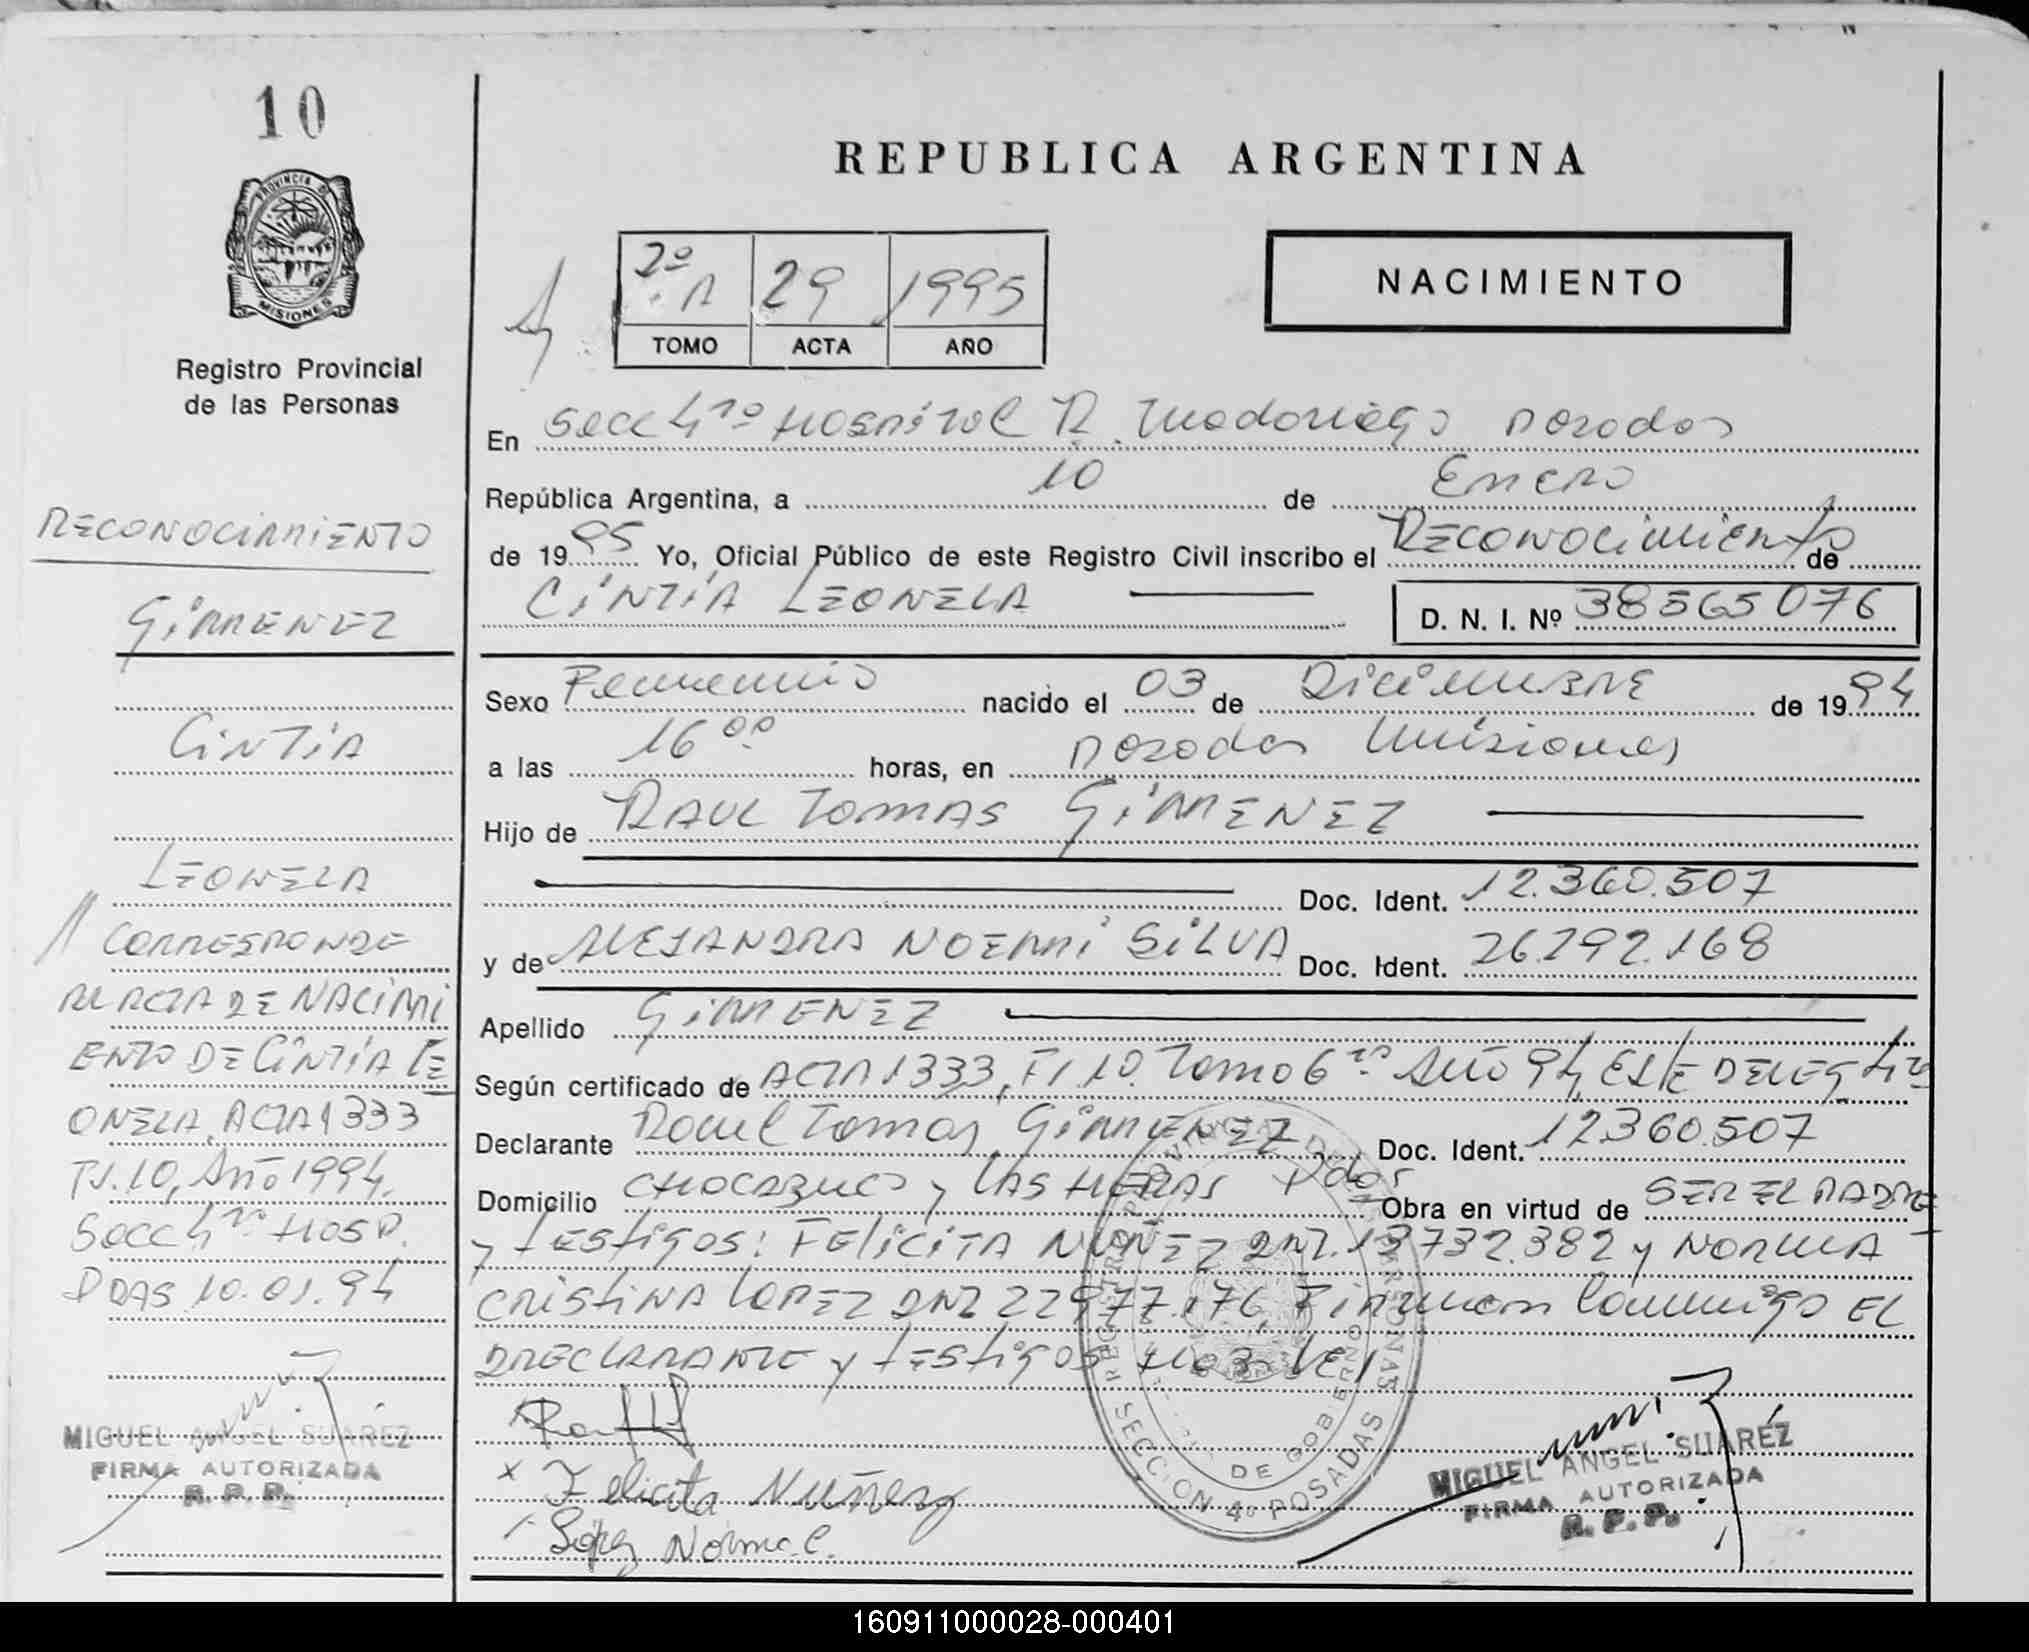 10
REPUBLICA ARGENTINA
PROVINCIA DE
MISIONES
Registro Provincial
de las Personas
2º
29
1995
TOMO
ACTA
AÑO
NACIMIENTO
En Secc 4ta Hospital R. Madariaga Posadas
República Argentina, a 10 de Enero
de 1995 Yo, Oficial Público de este Registro Civil inscribo el Reconocimiento de
CINTIA LEONELA
D. N. I. Nº 38565076
Sexo Femenino nacido el 03 de Diciembre de 1994
a las 16 00 horas, en Posadas Misiones
Hijo de RAUL TOMAS GIMENEZ
Doc. Ident. 12.360.507
y de ALEJANDRA NOEMI SILVA Doc. Ident. 26.292.168
Apellido GIMENEZ
Según certificado de ACTA 1333, Fl. 10. Tomo 6to Año 94, ESTE
Declarante Raul Tomas GIMENEZ Doc. Ident. 12360.507
Domicilio y LAS HERAS Pdas Obra en virtud de SER EL PADRE
y testigos: FELICITA NUÑEZ DNI. 13732.382 y NORMA
CRISTINA LOPEZ DNI 22977.176, Firman conmigo EL
DECLARANTE y testigos
Felicita Nuñez
López Norma C.
MIGUEL ANGEL SUAREZ
FIRMA AUTORIZADA
R. P. P.
SECCION 4º POSADAS
DE GOBIERNO
RECONOCIMIENTO
GIMENEZ
CINTIA
LEONELA
CORRESPONDE
AL ACTA DE NACIMI
ENTO DE CINTIA LE
ONELA, ACTA 1333
Fl. 10, Año 1994.
Secc 4ta HOSP.
PDAS 10.01.94
MIGUEL ANGEL SUAREZ
FIRMA AUTORIZADA
R. P. P.
160911000028-000401